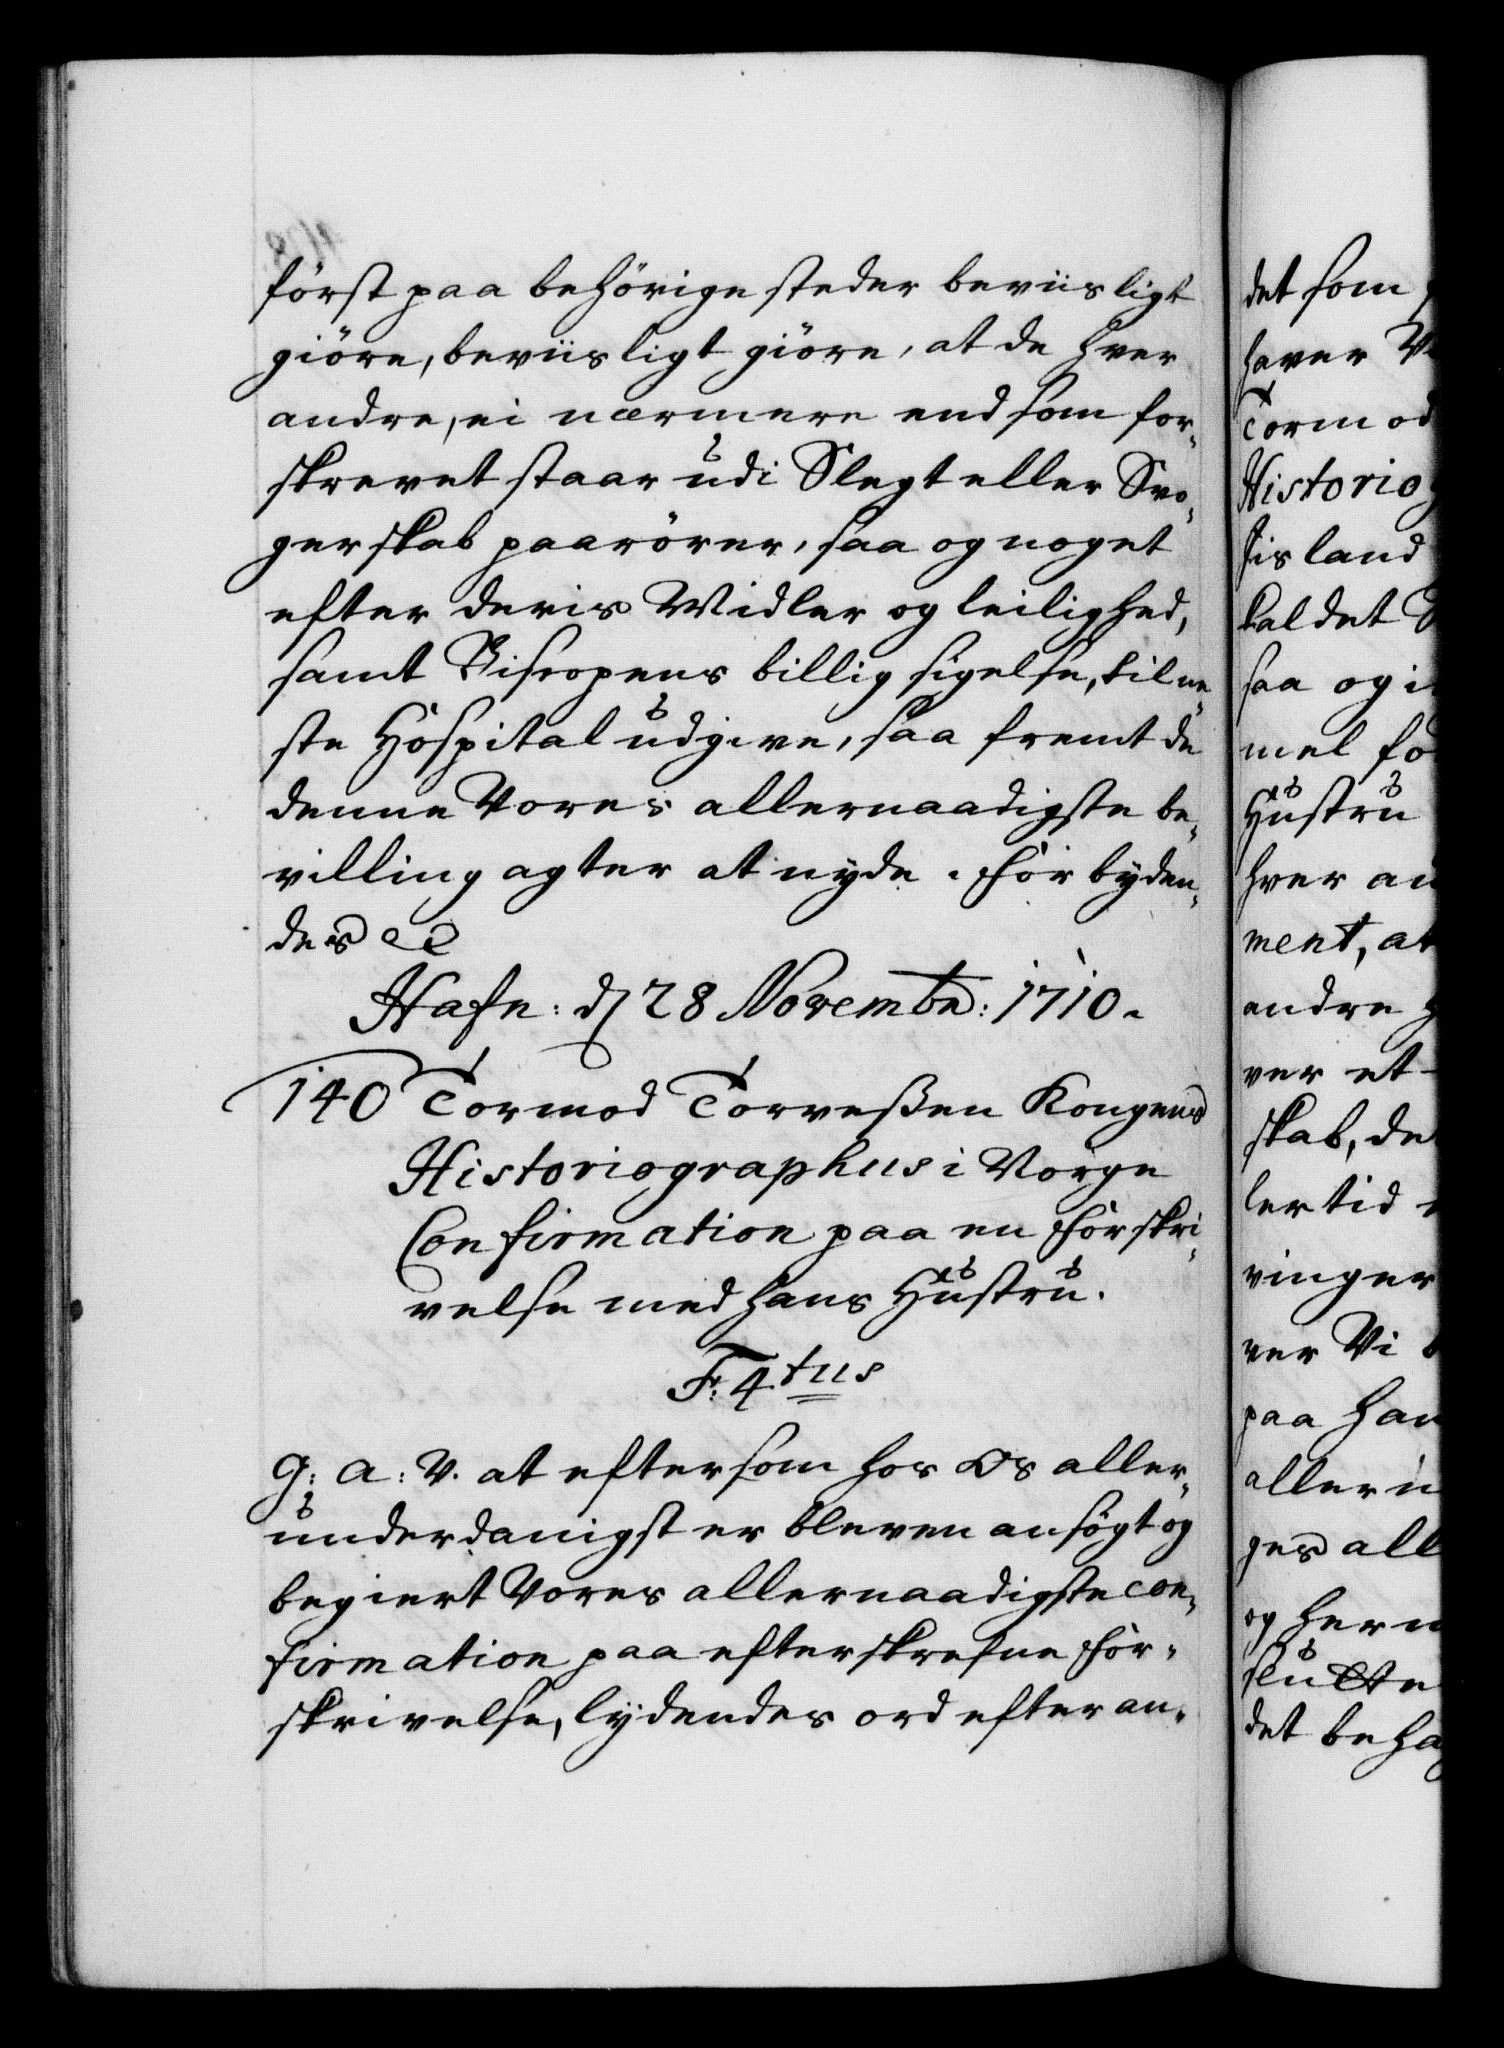 först paa behörige steder beviisligt
giöre, beviisligt giöre, at de hver
andre, ei nærmere end som for„
skrevet staar udi Slegt eller Svo„
gerskab paarörer, saa og noget
efter deris Midler og leilighed,
samt Biscopens billig sigelse, til ne„
ste Hospital udgive, saa fremt de
denne Vores allernaadigste be„
villing agter at nyde. Forbyden„
des
Hafn: d 28 Novembr: 1710.
140 Tormod Torveßen Kongens
Historiographus i Norge
Confirmation paa en Forskri„
velse med hans Hustru.
F: 4tus
G: A: V. at eftersom hos Os aller„
underdanigst er bleven ansögt og
begiert Vores allernaadigste con„
firmation paa efterskrefne For„
skrivelse, lydendes ord efter an„
det som
haver
Tormod
Historiog
Jisland
kaldet
saa og i
mel fo
Hustru
hver an
ment, at
andre
ver et
skab, de
ler tid
vinger
ver Vi
paa han
alleru
ges all
og her
slutte
det beha